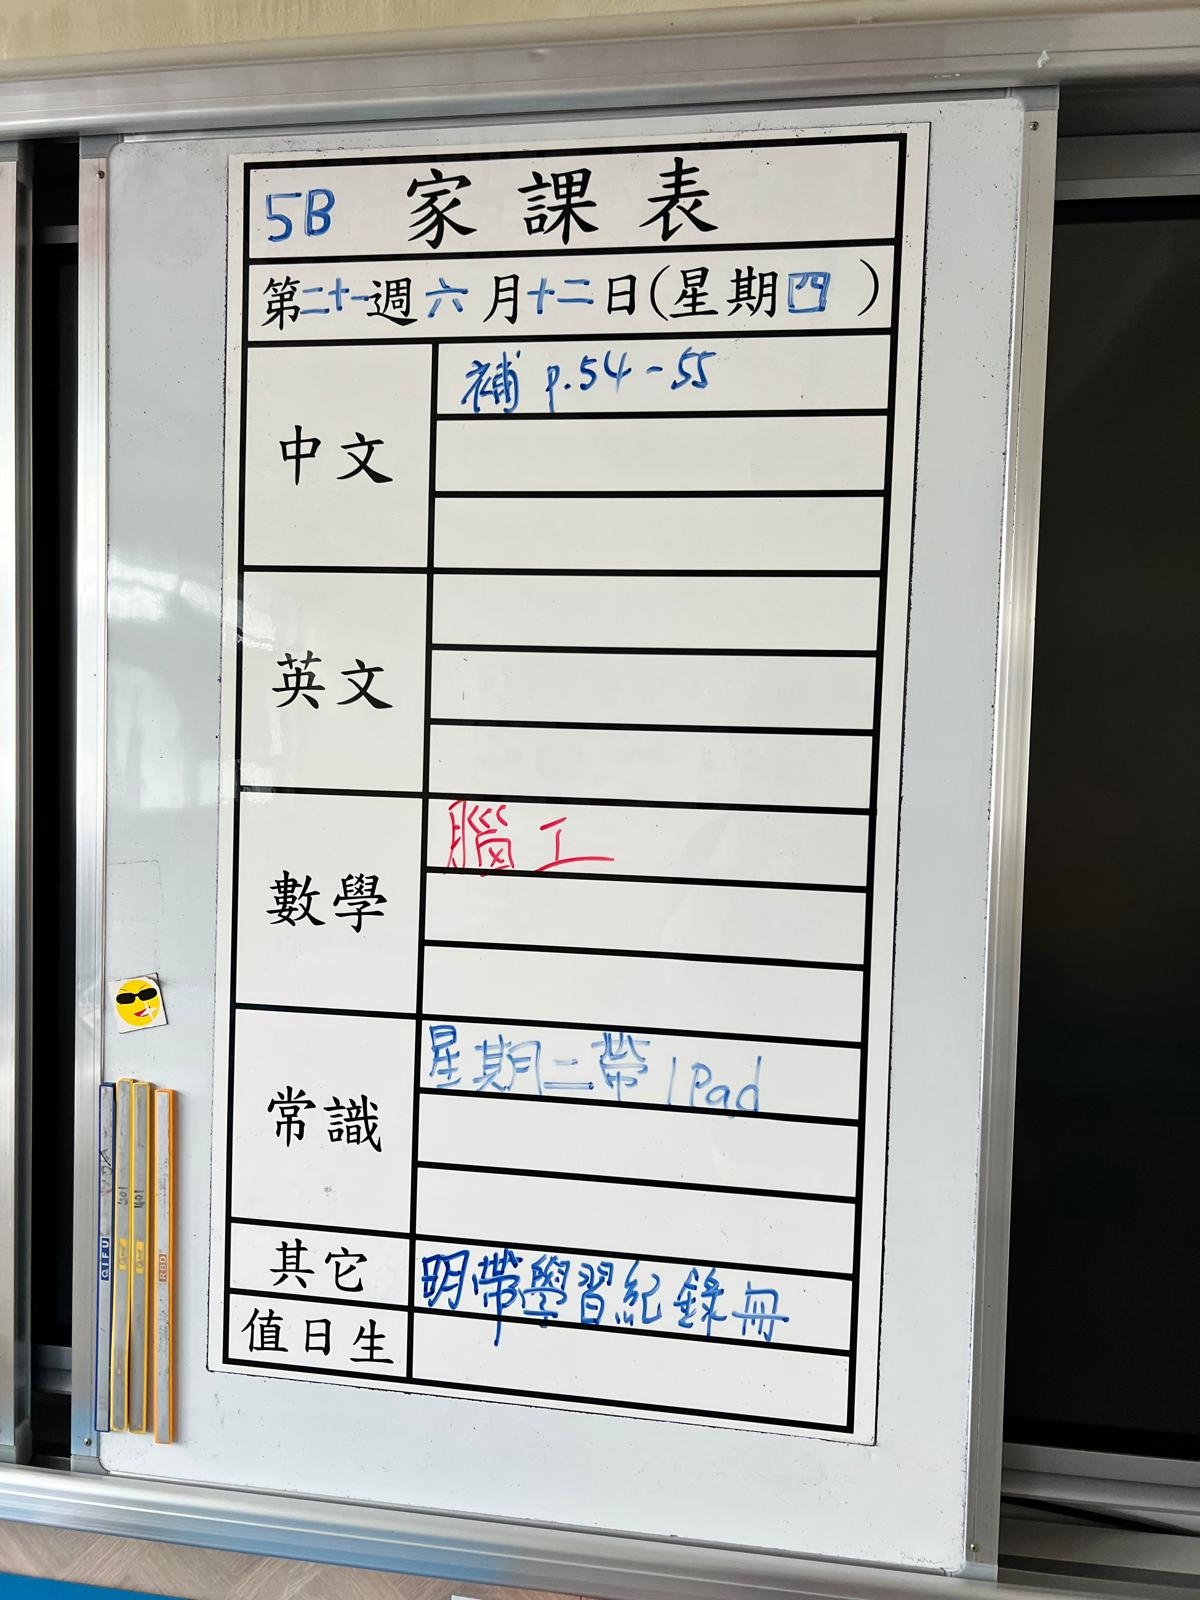 5B 家課表
第二十一週六月十二日(星期四)
中文
補 p.54-55
英文
數學
腦工
常識
星期二帶 IPad
其它
明帶學習紀錄冊
值日生
GIFU
RBD